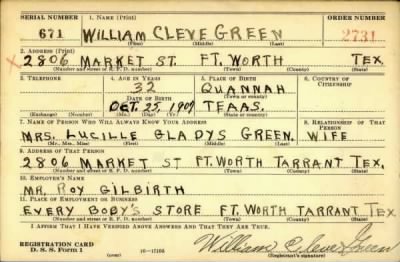 SERIAL NUMBER 1. NAME (Print) ORDER NUMBER
671 WILLIAM CLEVE GREEN 2731
(First) (Middle) (Last)
2. ADDRESS (Print)
X 2806 MARKET ST. FT. WORTH TEX
(Number and street or R. F. D. number) (Town) (County) (State)
3. TELEPHONE 4. AGE IN YEARS 5. PLACE OF BIRTH 6. COUNTRY OF CITIZENSHIP
32 QUANNAH
DATE OF BIRTH (Town or county)
OCT. 25, 1907 TEAAS.
(Exchange) (Number) (Mo.) (Day) (Yr.) (State or country)
7. NAME OF PERSON WHO WILL ALWAYS KNOW YOUR ADDRESS 8. RELATIONSHIP OF THAT PERSON
MRS. LUCILLE GLADYS GREEN. WIFE
(Mr., Mrs., Miss) (First) (Middle) (Last)
9. ADDRESS OF THAT PERSON
2806 MARKET ST FT. WORTH TARRANT TEX.
(Number and street or R. F. D. number) (Town) (County) (State)
10. EMPLOYER'S NAME
MR. ROY GILBIRTH
11. PLACE OF EMPLOYMENT OR BUSINESS
EVERY BOBY'S STORE FT. WORTH TARRANT TEX
(Number and street or R. F. D. number) (Town) (County) (State)
I AFFIRM THAT I HAVE VERIFIED ABOVE ANSWERS AND THAT THEY ARE TRUE.
REGISTRATION CARD
D. S. S. Form 1 16—17105 William Cleve Green
(Registrant's signature)